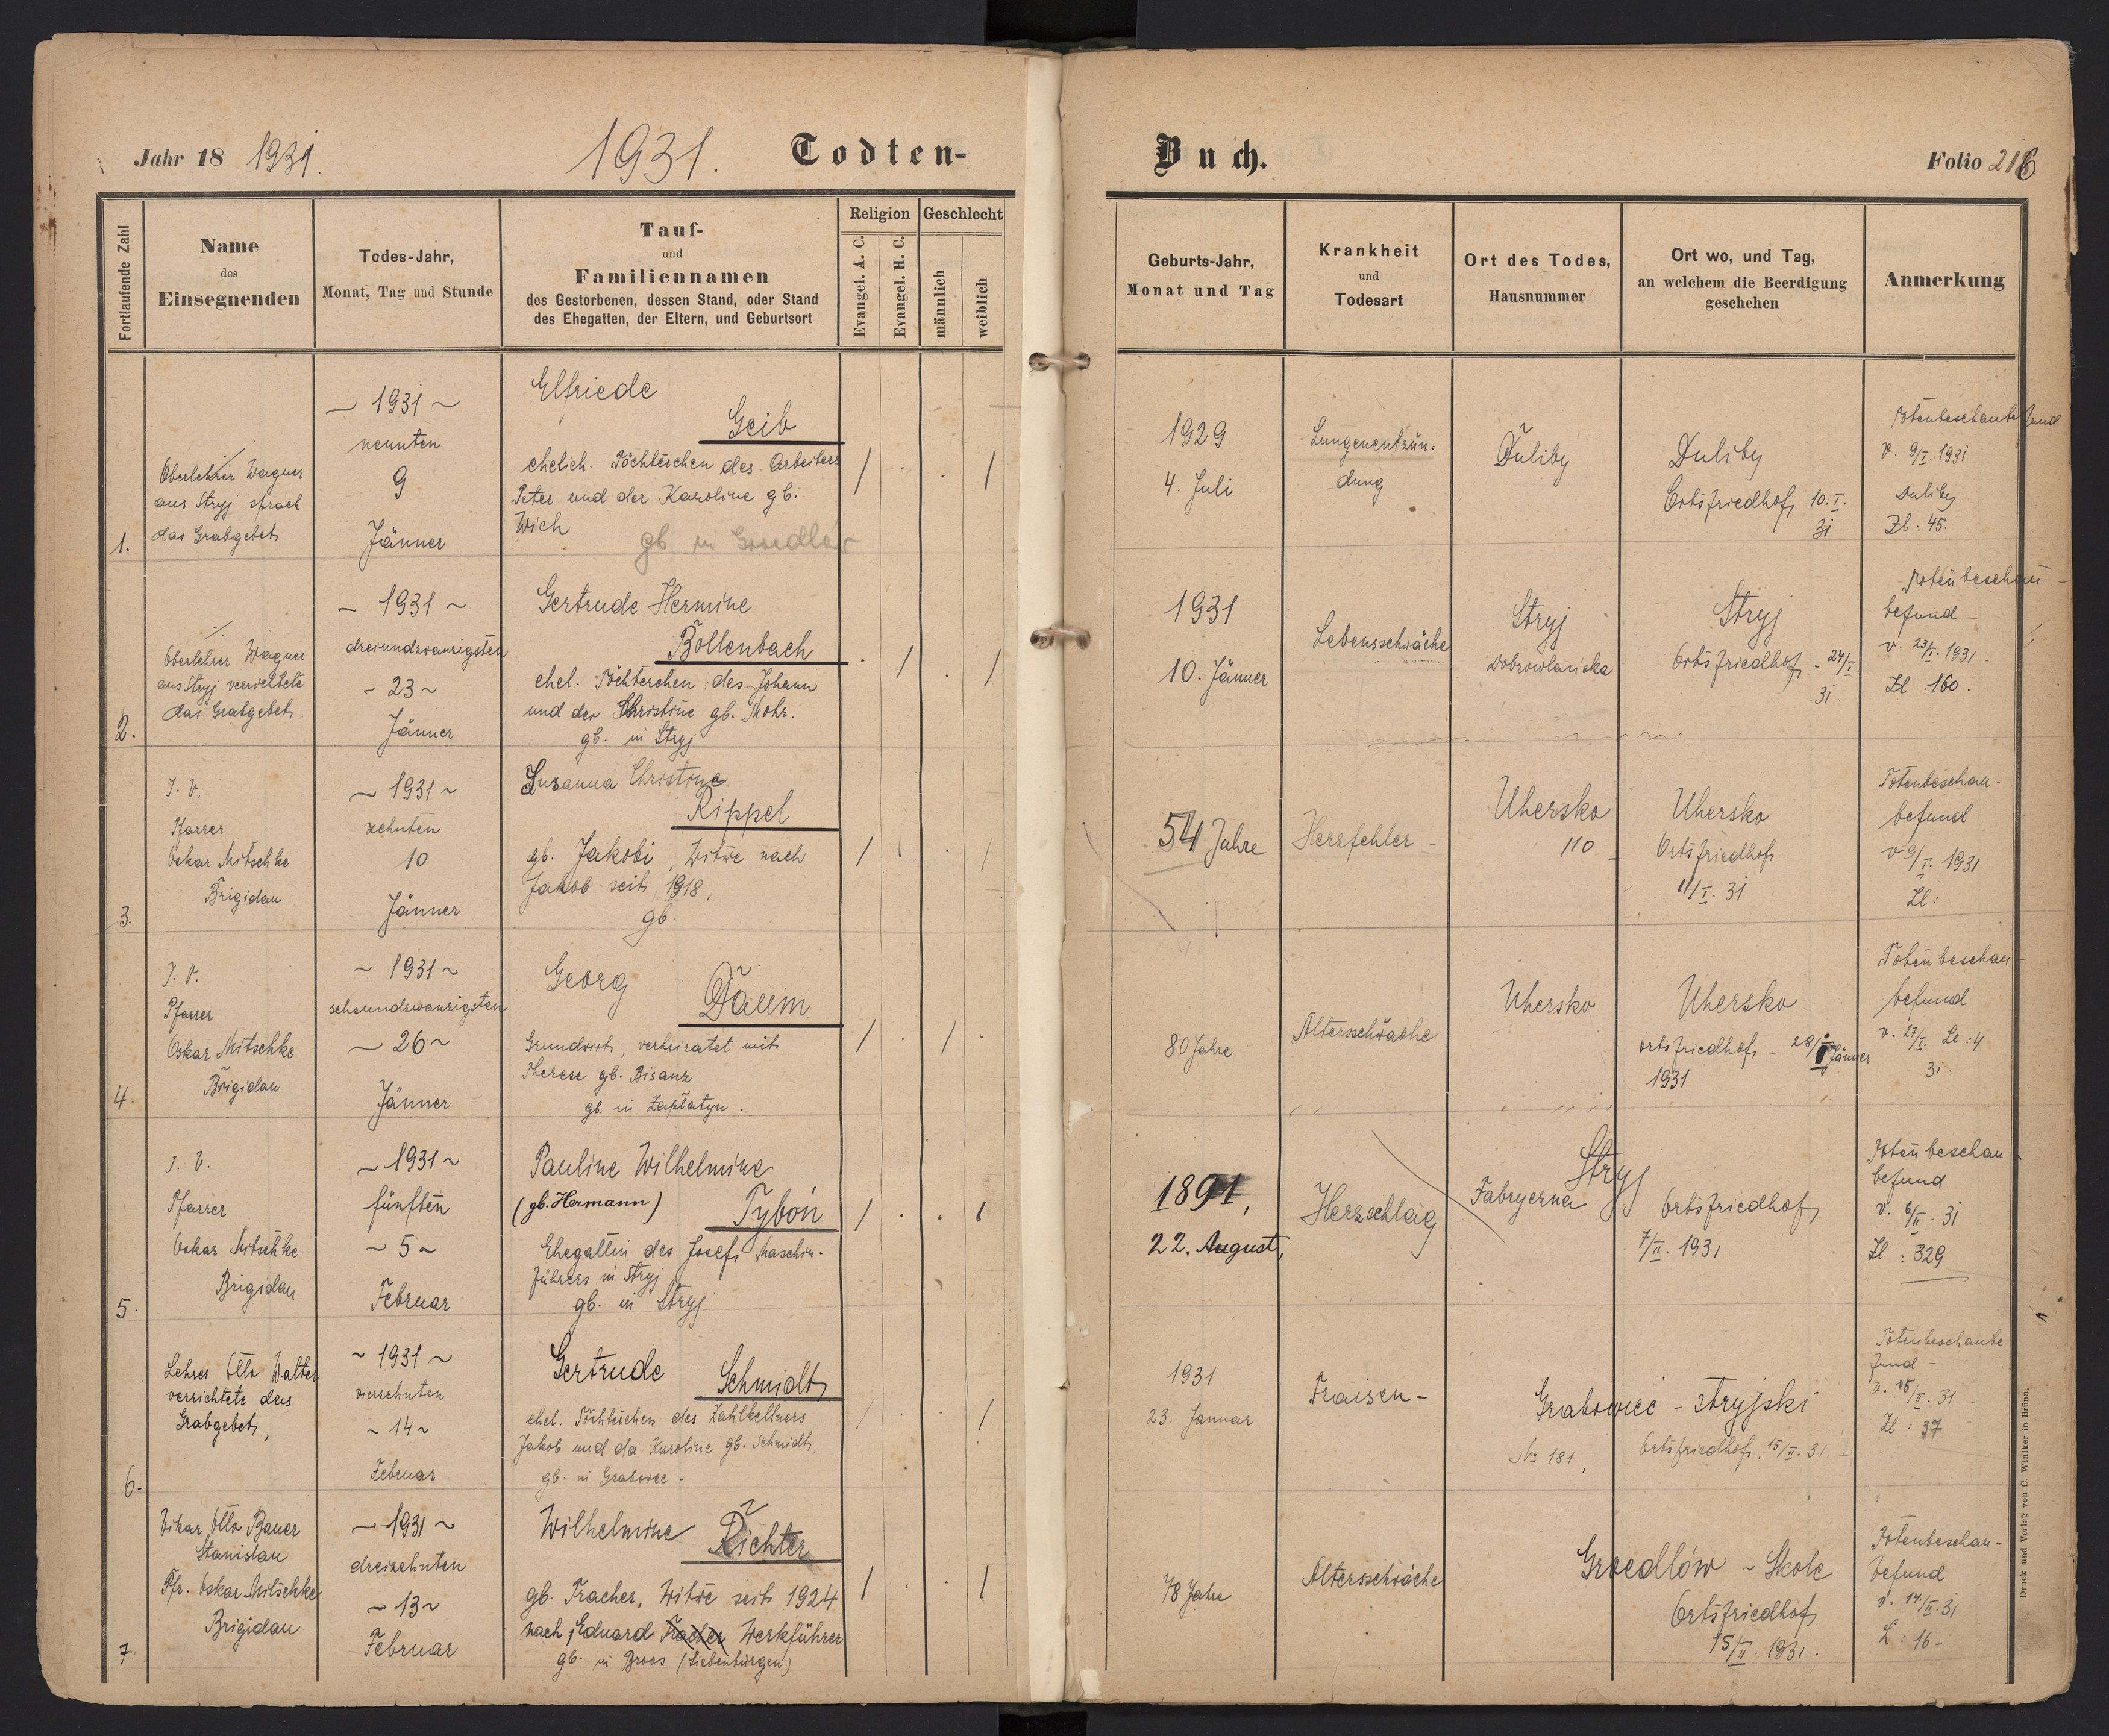 Jahr 18 1931.
1931.
Todten-
Buch.
Folio 216
Fortlaufende Zahl
Name
des
Einsegnenden
Todes-Jahr,
Monat, Tag und Stunde
Tauf-
und
Familiennamen
des Gestorbenen, dessen Stand, oder Stand
des Ehegatten, der Eltern, und Geburtsort
Religion
Evangel. A. C.
Evangel. H. C.
Geschlecht
männlich
weiblich
Geburts-Jahr,
Monat und Tag
Krankheit
und
Todesart
Ort des Todes,
Hausnummer
Ort wo, und Tag,
an welchem die Beerdigung
geschehen
Anmerkung
1.
Oberlehrer Wagner
aus Stryj sprach
das Grabgebet
~ 1931 ~
neunten
9
Jänner
Elfriede
Geib
ehelich. Töchterchen des Arbeiters
Peter und der Karoline gb.
Wich
gb. in Groedlów
/ . . /
1929
4. Juli
Lungenentzün-
dung
Duliby
Duliby
Ortsfriedhof, 10. I.
31
Totenbeschaubefund
v. 9/I. 1931
Duliby
Zl: 45.
2.
Oberlehrer Wagner
aus Stryj verrichtete
das Grabgebet.
~ 1931 ~
dreiundzwanzigsten
~ 23 ~
Jänner
Gertrude Hermine
Bollenbach
ehel. Töchterchen des Johann
und der Christine gb. Mohr.
gb. in Stryj
. / . /
1931
10. Jänner
Lebensschwäche
Stryj
Dobrowlanska
Stryj
Ortsfriedhof - 24/I.
31
Totenbeschau-
befund -
v. 23/I. 1931
Zl: 160.
3.
I. V.
Pfarrer
Oskar Mitschke
Brigidau
~ 1931 ~
zehnten
10
Jänner
Susanna Christine
Rippel
gb. Jakobi, Witwe nach
Jakob seit 1918,
gb.
/ . . /
54 Jahre
Herzfehler -
Uhersko
110 -
Uhersko
Ortsfriedhof
11/I. 31
Totenbeschau-
befund
v 9/I. 1931
Zl:
4.
I. V.
Pfarrer
Oskar Mitschke
Brigidau
~ 1931 ~
sechsundzwanzigsten
~ 26 ~
Jänner
Georg
Daum
Grundwirt, verheiratet mit
Therese gb. Bisanz
gb. in Zaplatyn.
/ . / .
80 Jahre
Altersschwäche
Uhersko
Uhersko
Ortsfriedhof - 28/ Jänner
1931
Totenbeschau-
befund
v. 27/I. Zl: 4
31.
5.
I. V.
Pfarrer
Oskar Mitschke
Brigidau
~ 1931 ~
fünften
~ 5 ~
Februar
Pauline Wilhelmine
(gb. Hermann)
Tyboń
Ehegattin des Josef, Maschin-
führers in Stryj
gb. in Stryj
/ . . /
1891,
22. August,
Herzschlag
Stryj
Fabryczna
Ortsfriedhof,
7/II. 1931
Totenbeschau
befund
v. 6/II. 31
Zl: 329
6.
Lehrer Otto Walter
verrichtete das
Grabgebet,
~ 1931 ~
vierzehnten
~ 14 ~
Februar
Gertrude
Schmidt
ehel. Töchterchen des Zahlkellners
Jakob und da Karoline gb. Schmidt,
gb. in Grabowce -
/ . . /
1931
23. Januar
Fraisen -
Grabowiec - stryjski
No 181,
Ortsfriedhof, 15/II. 31 -
Totenbeschaube
fund -
v. 15/II. 31
Zl: 37
7
Vikar Otto Bauer
Stanislau
Pfr. Oskar Mitschke
Brigidau
~ 1931 ~
dreizehnten
~ 13 ~
Februar
Wilhelmine
Richter
gb. Tracher, Witwe seit 1924
nach Eduard Tracher Werkführer
gb. in Broos (Siebenbürgen)
/ . . /
78 Jahre
Altersschwäche
Groedlów - Skole
Ortsfriedhof,
15/II. 1931.
Totenbeschau-
befund
v. 14/II. 31
Z: 16 -
Druck und Verlag von C. Winiker in Brünn.